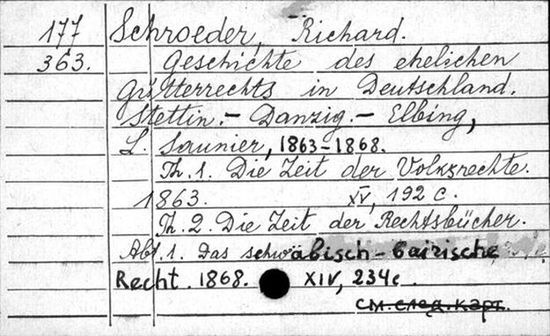 177 Schroeder, Richard.
363. Geschichte des ehelichen
Gütterrechts in Deutschland.
Stettin.- Danzig.- Elbing,
L. Saunier, 1863-1868.
Th. 1. Die Zeit der Volksrechte.
1863. XV, 192 с.
Th. 2. Die Zeit der Rechtsbücher.
Abt. 1. Das schwäbisch-bairische
Recht. 1868. XIV, 234с.
см. след. карт.